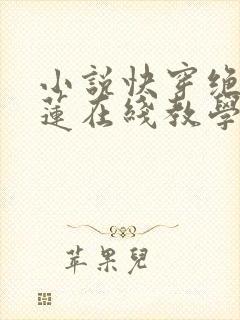 小說快穿絕
蓮在綫教學
苹果兒